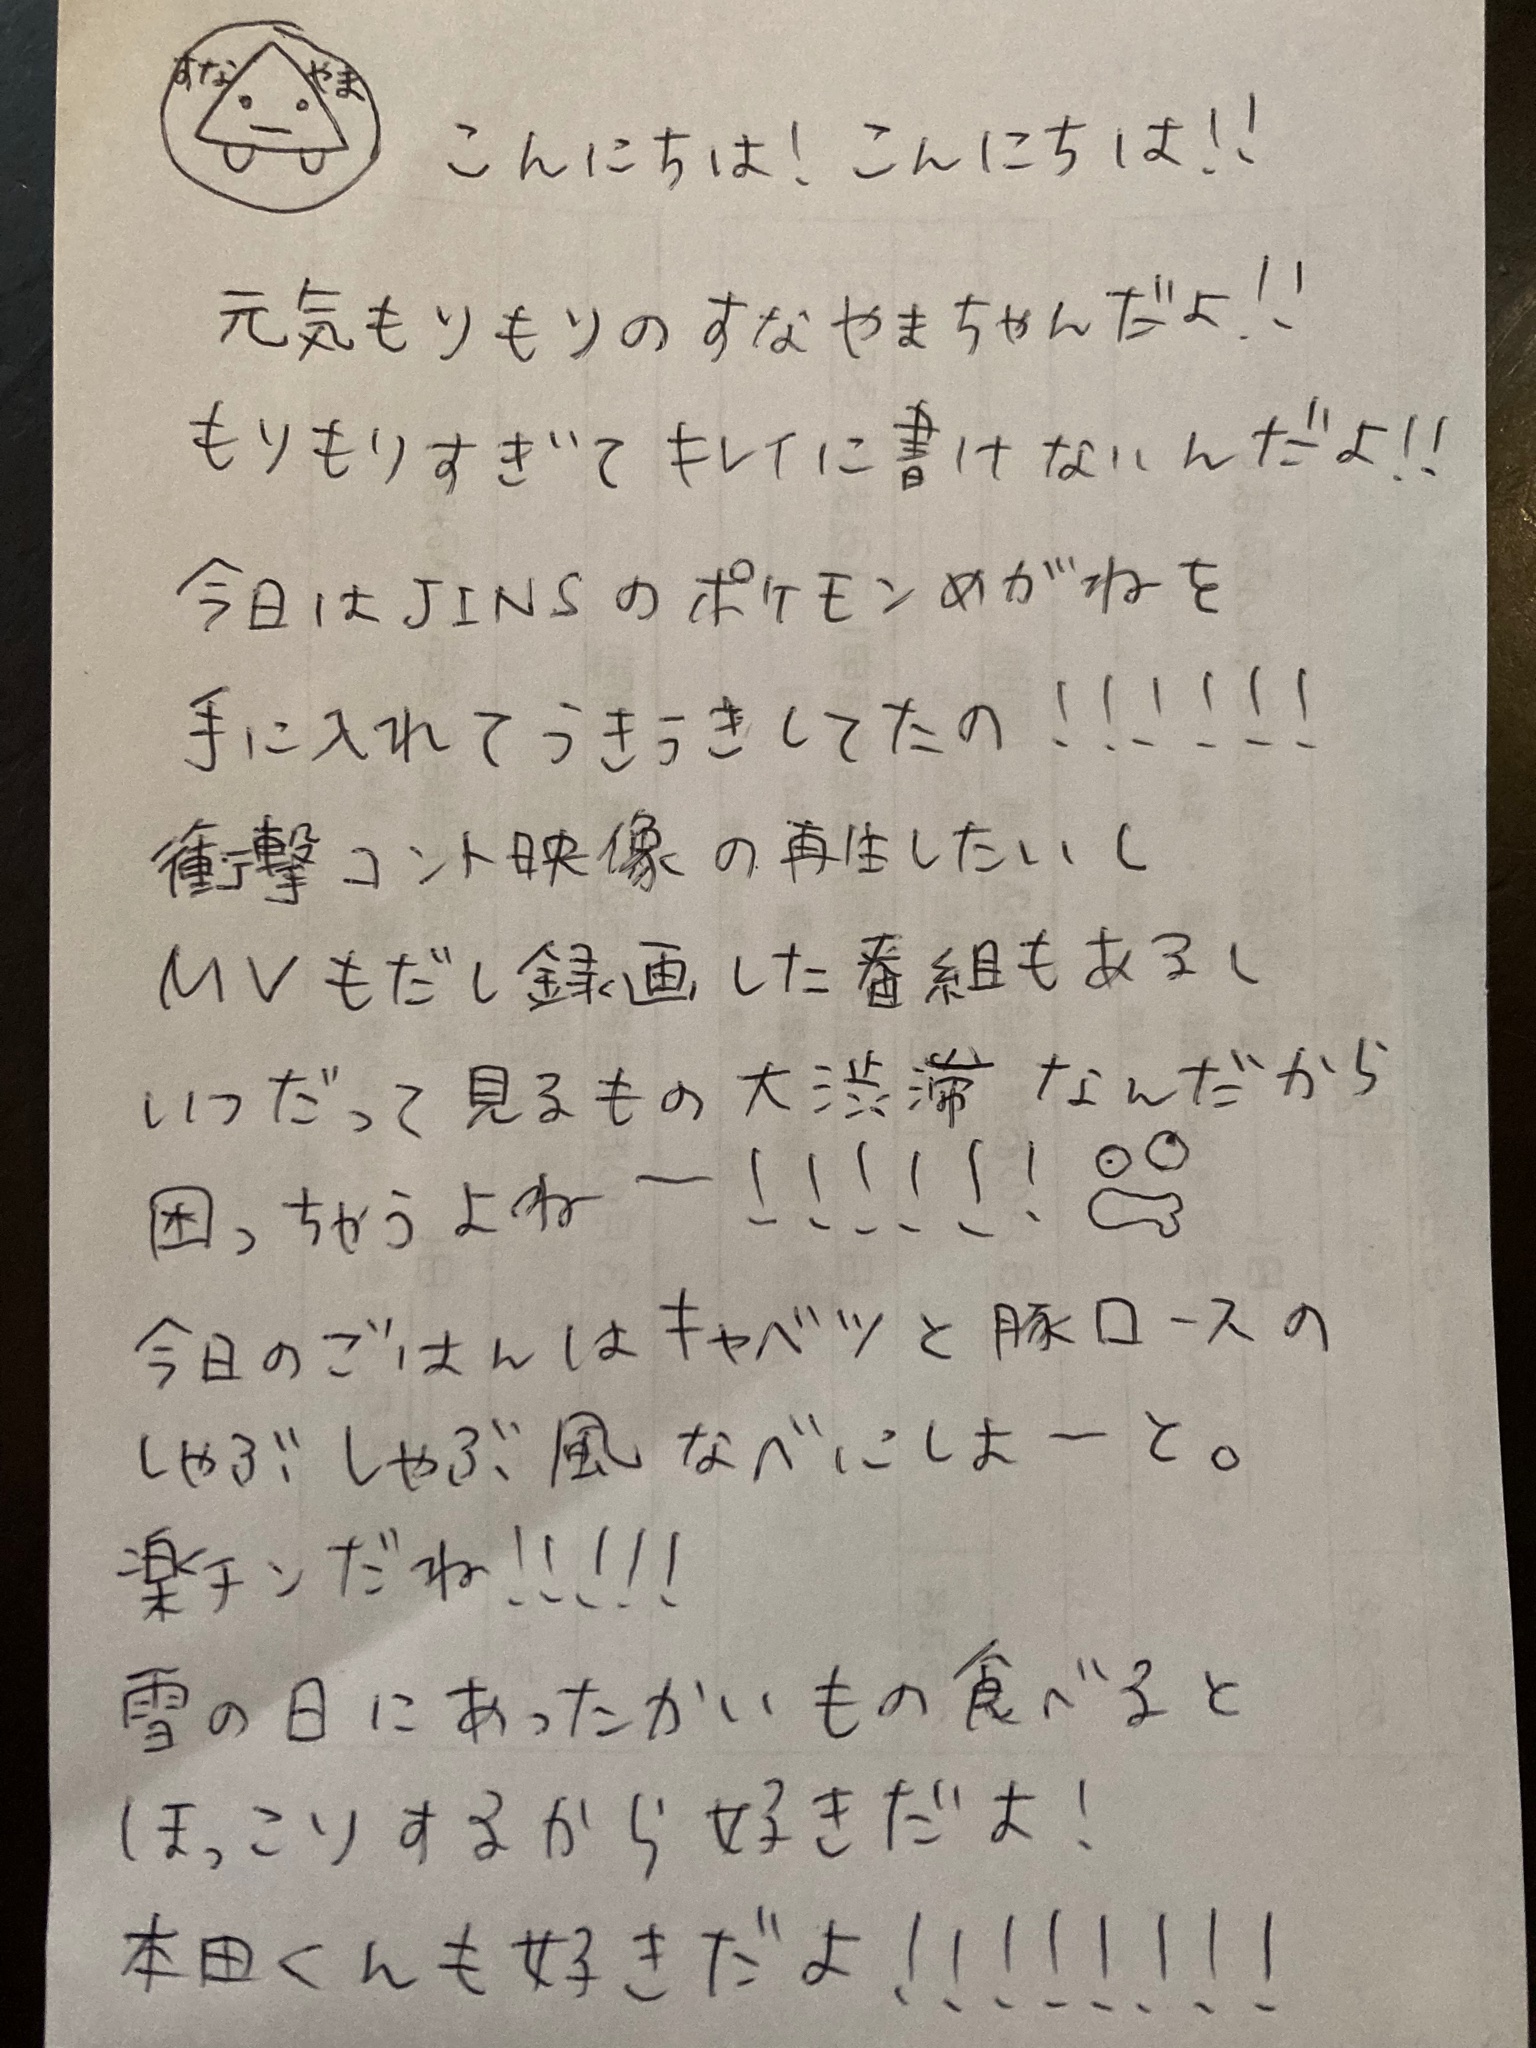 すなやま
こんにちは！こんにちは！！
元気もりもりのすなやまちゃんだよ！！
もりもりすぎてキレイに書けないんだよ！！
今日はJINSのポケモンめがねを
手に入れてうきうきしてたの！！！！！！
衝撃コント映像の再生したいし
MVもだし録画した番組もあるし
いつだって見るもの大渋滞なんだから
困っちゃうよねー！！！！！！
今日のごはんはキャベツと豚ロースの
しゃぶしゃぶ風なべにしよーと。
楽チンだね！！！！！
雪の日にあったかいもの食べると
ほっこりするから好きだよ！
本田くんも好きだよ！！！！！！！！